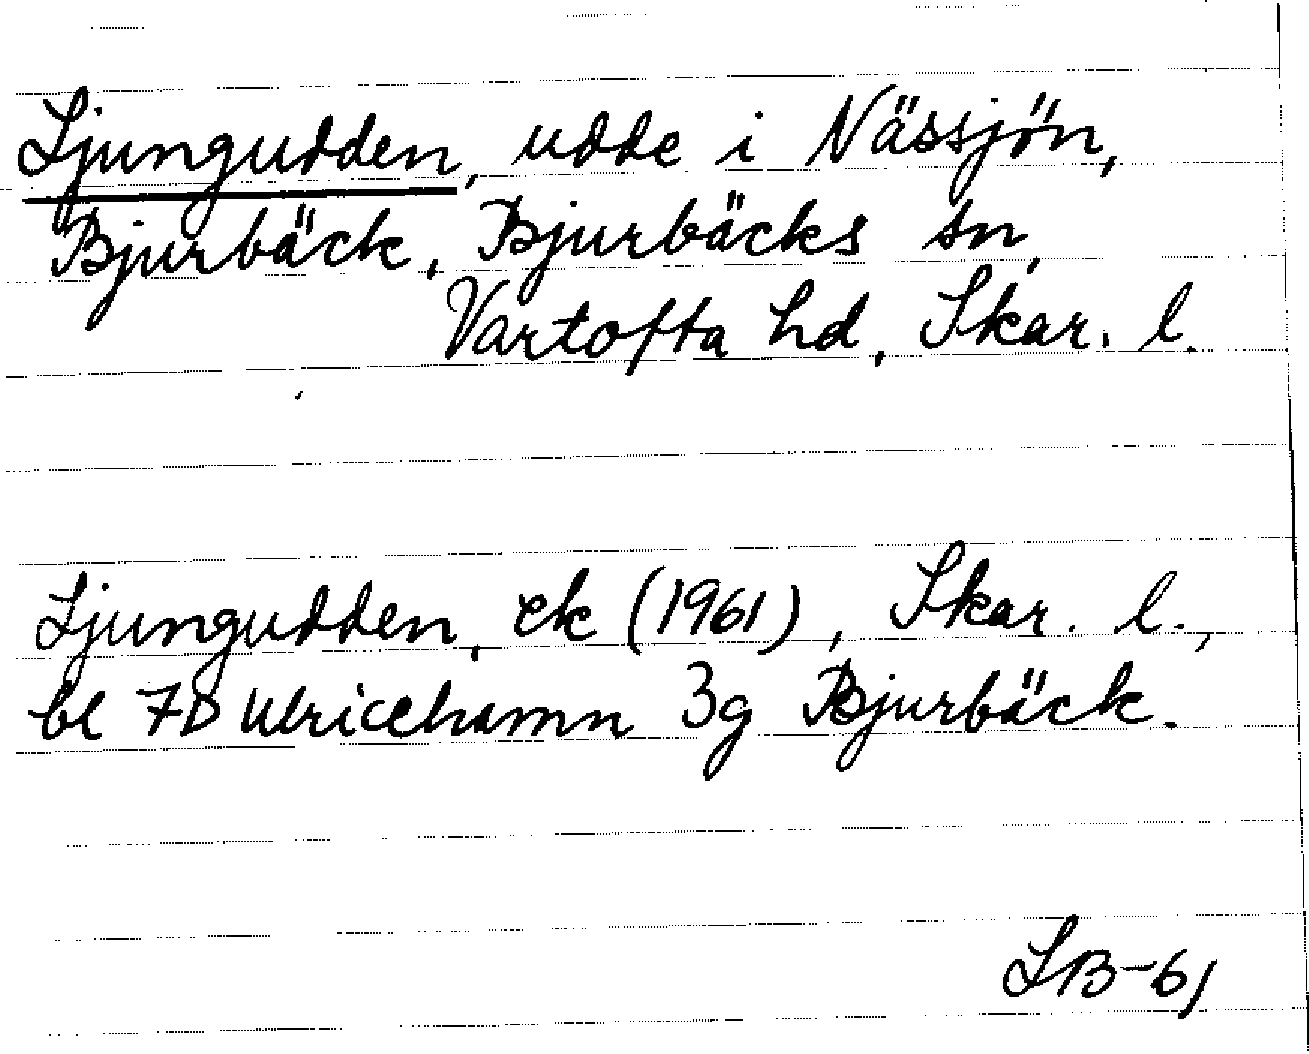 Ljungudden, udde i Nässjön,
Bjurbäck, Bjurbäcks sn,
Vartofta hd, Skar. l.
Ljungudden, ek (1961), Skar. l.,
bl 7D Ulricehamn 3g Bjurbäck.
LB-61